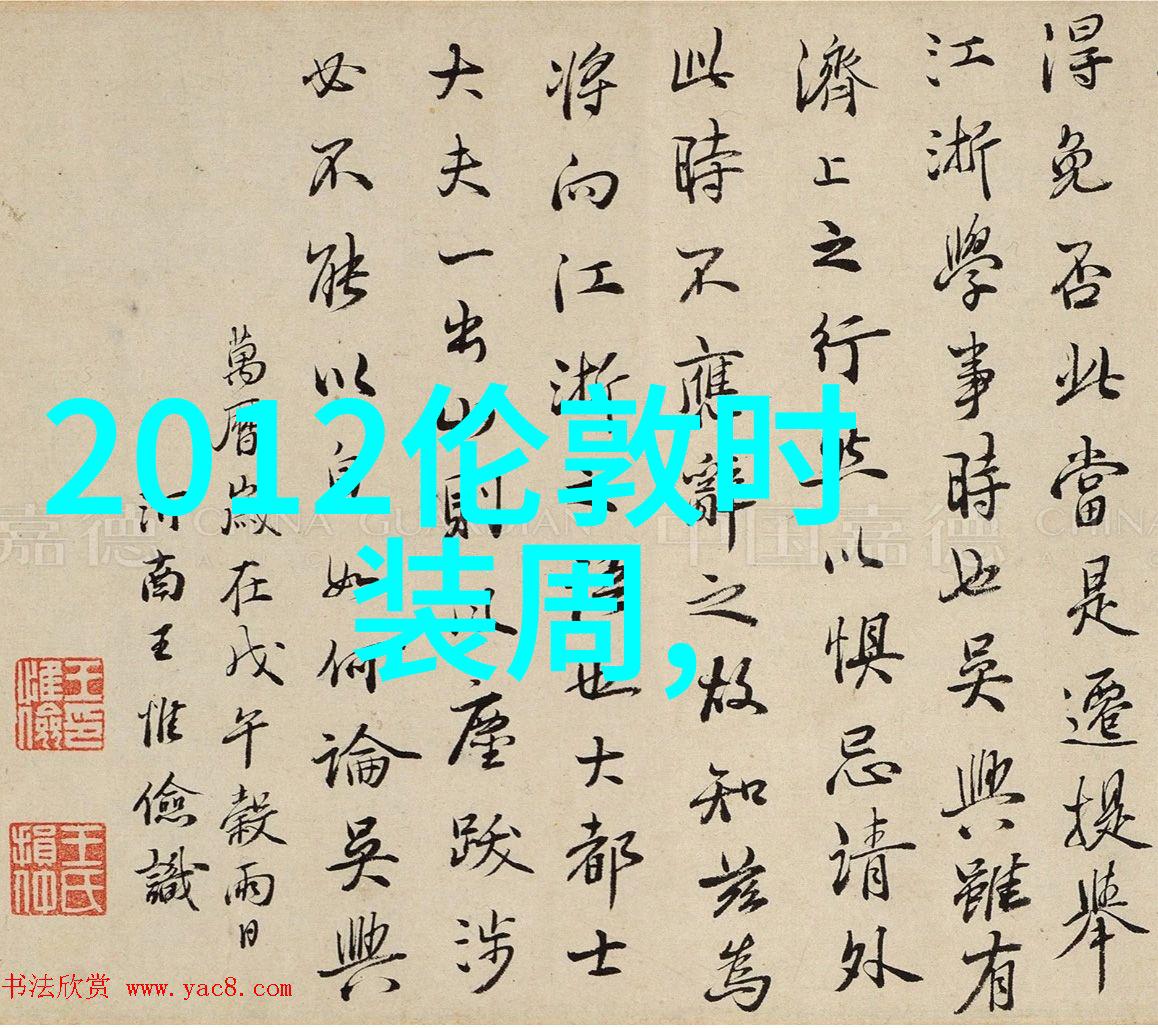 得免否此當是遷提舉
江浙學事時也吳興雖有
濟上之行然以懼忌請外
此時不應辭之故知茲為
将向江浙之也大都士
大夫一出山則風塵跋涉
必不能以自如何論吳興
萬曆歲在戊午穀雨日
河南王惟儉識
王惟儉印
王氏損仲
2012伦敦时
装周,
嘉德 CHINA GUARDIAN 中国嘉德 CHINA
书法欣赏 www.yac8.com